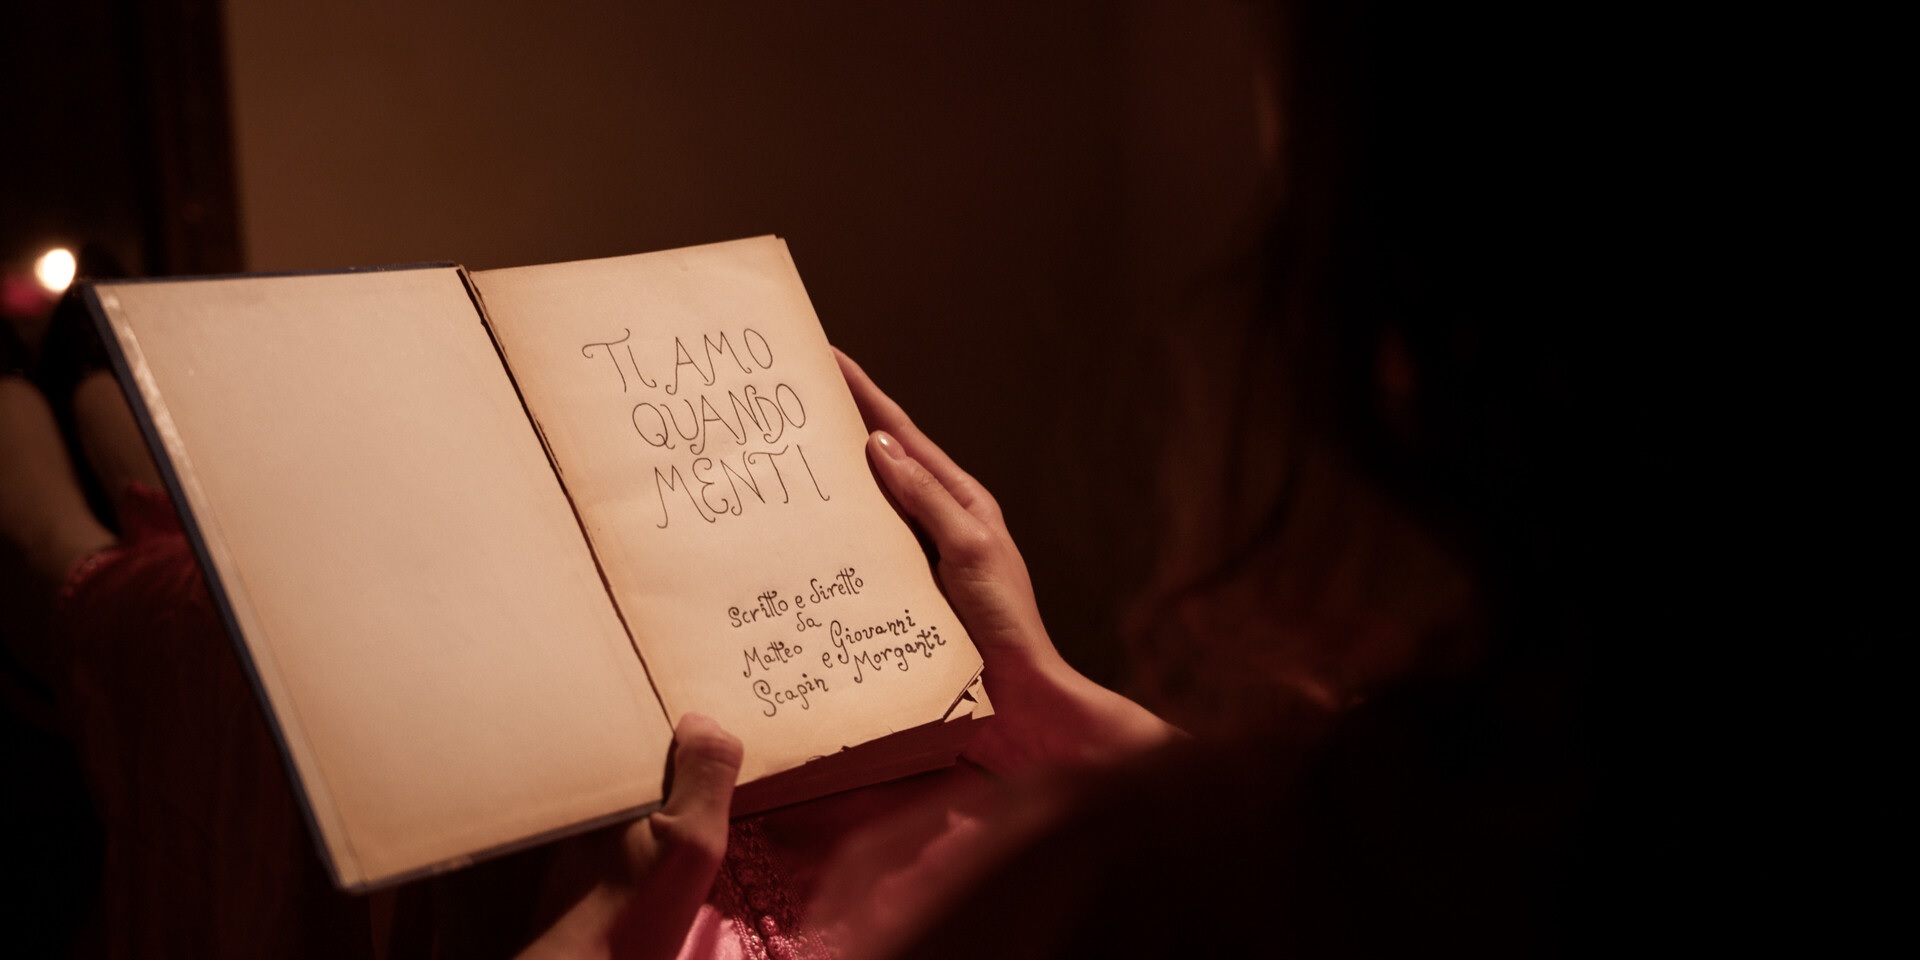 TI AMO
QUANDO
MENTI
Scritto e diretto
da
Matteo Scapin e Giovanni Morganti